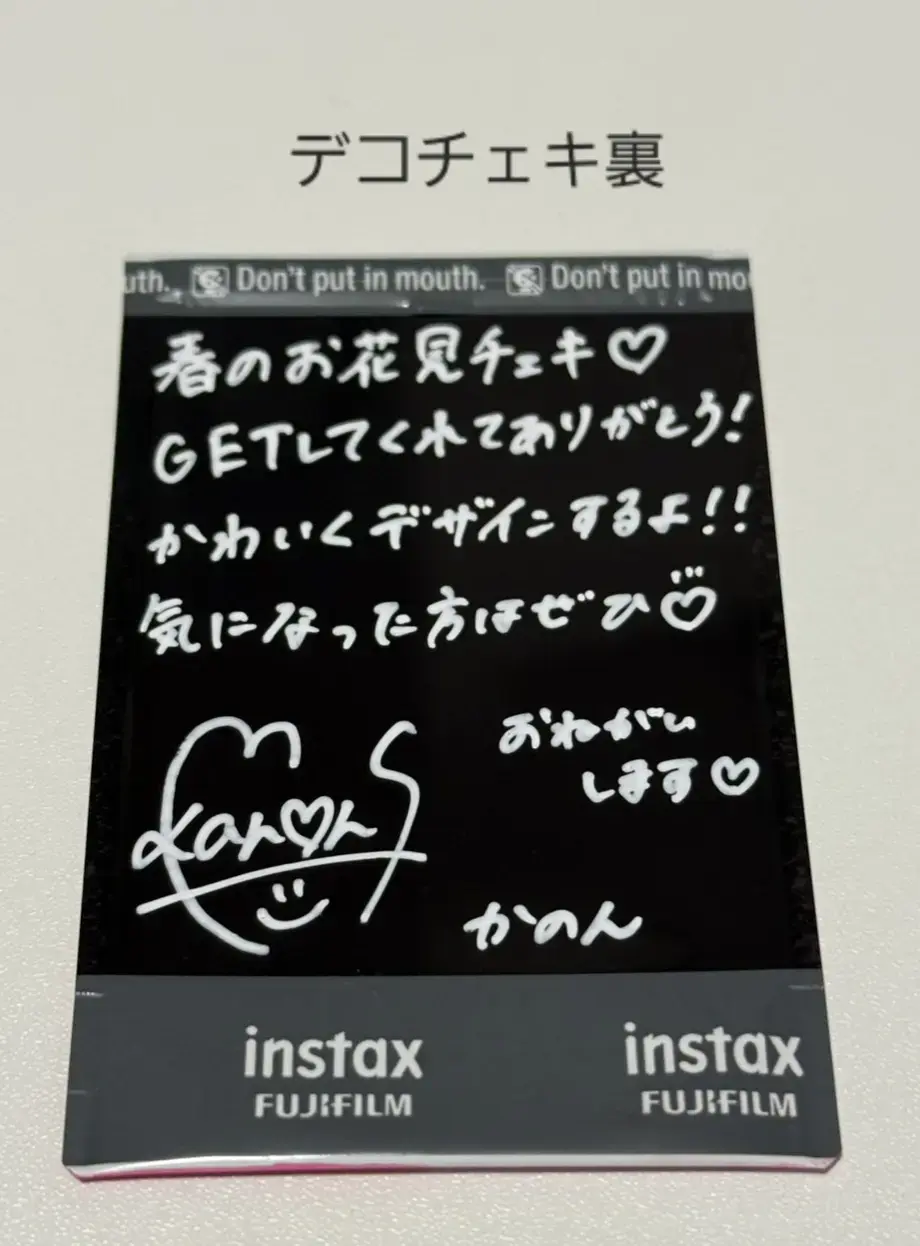 デコチェキ裏
uth. Don't put in mouth. Don't put in mo
春のお花見チェキ♡
GETしてくれてありがとう!
かわいくデザインするよ!!
気になった方はぜひ♡
おねがい
します♡
Kanon
かのん
instax instax
FUJIFILM FUJIFILM